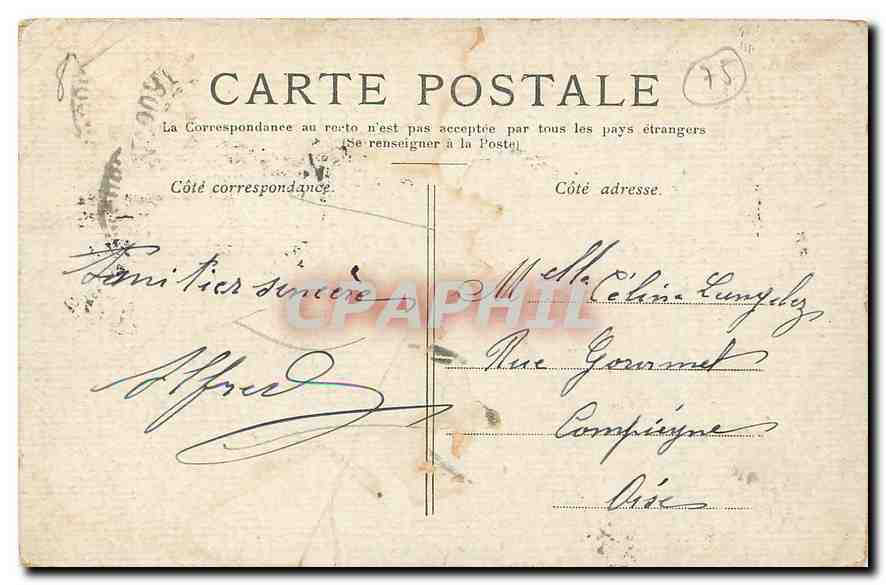 75
CARTE POSTALE
La Correspondance au recto n'est pas acceptée par tous les pays étrangers
(Se renseigner à la Poste)
Côté correspondance.
Côté adresse.
sincère
Alfred
CPAPHIL
Melle Célina
Rue Gourmet
Compiégne
Oise